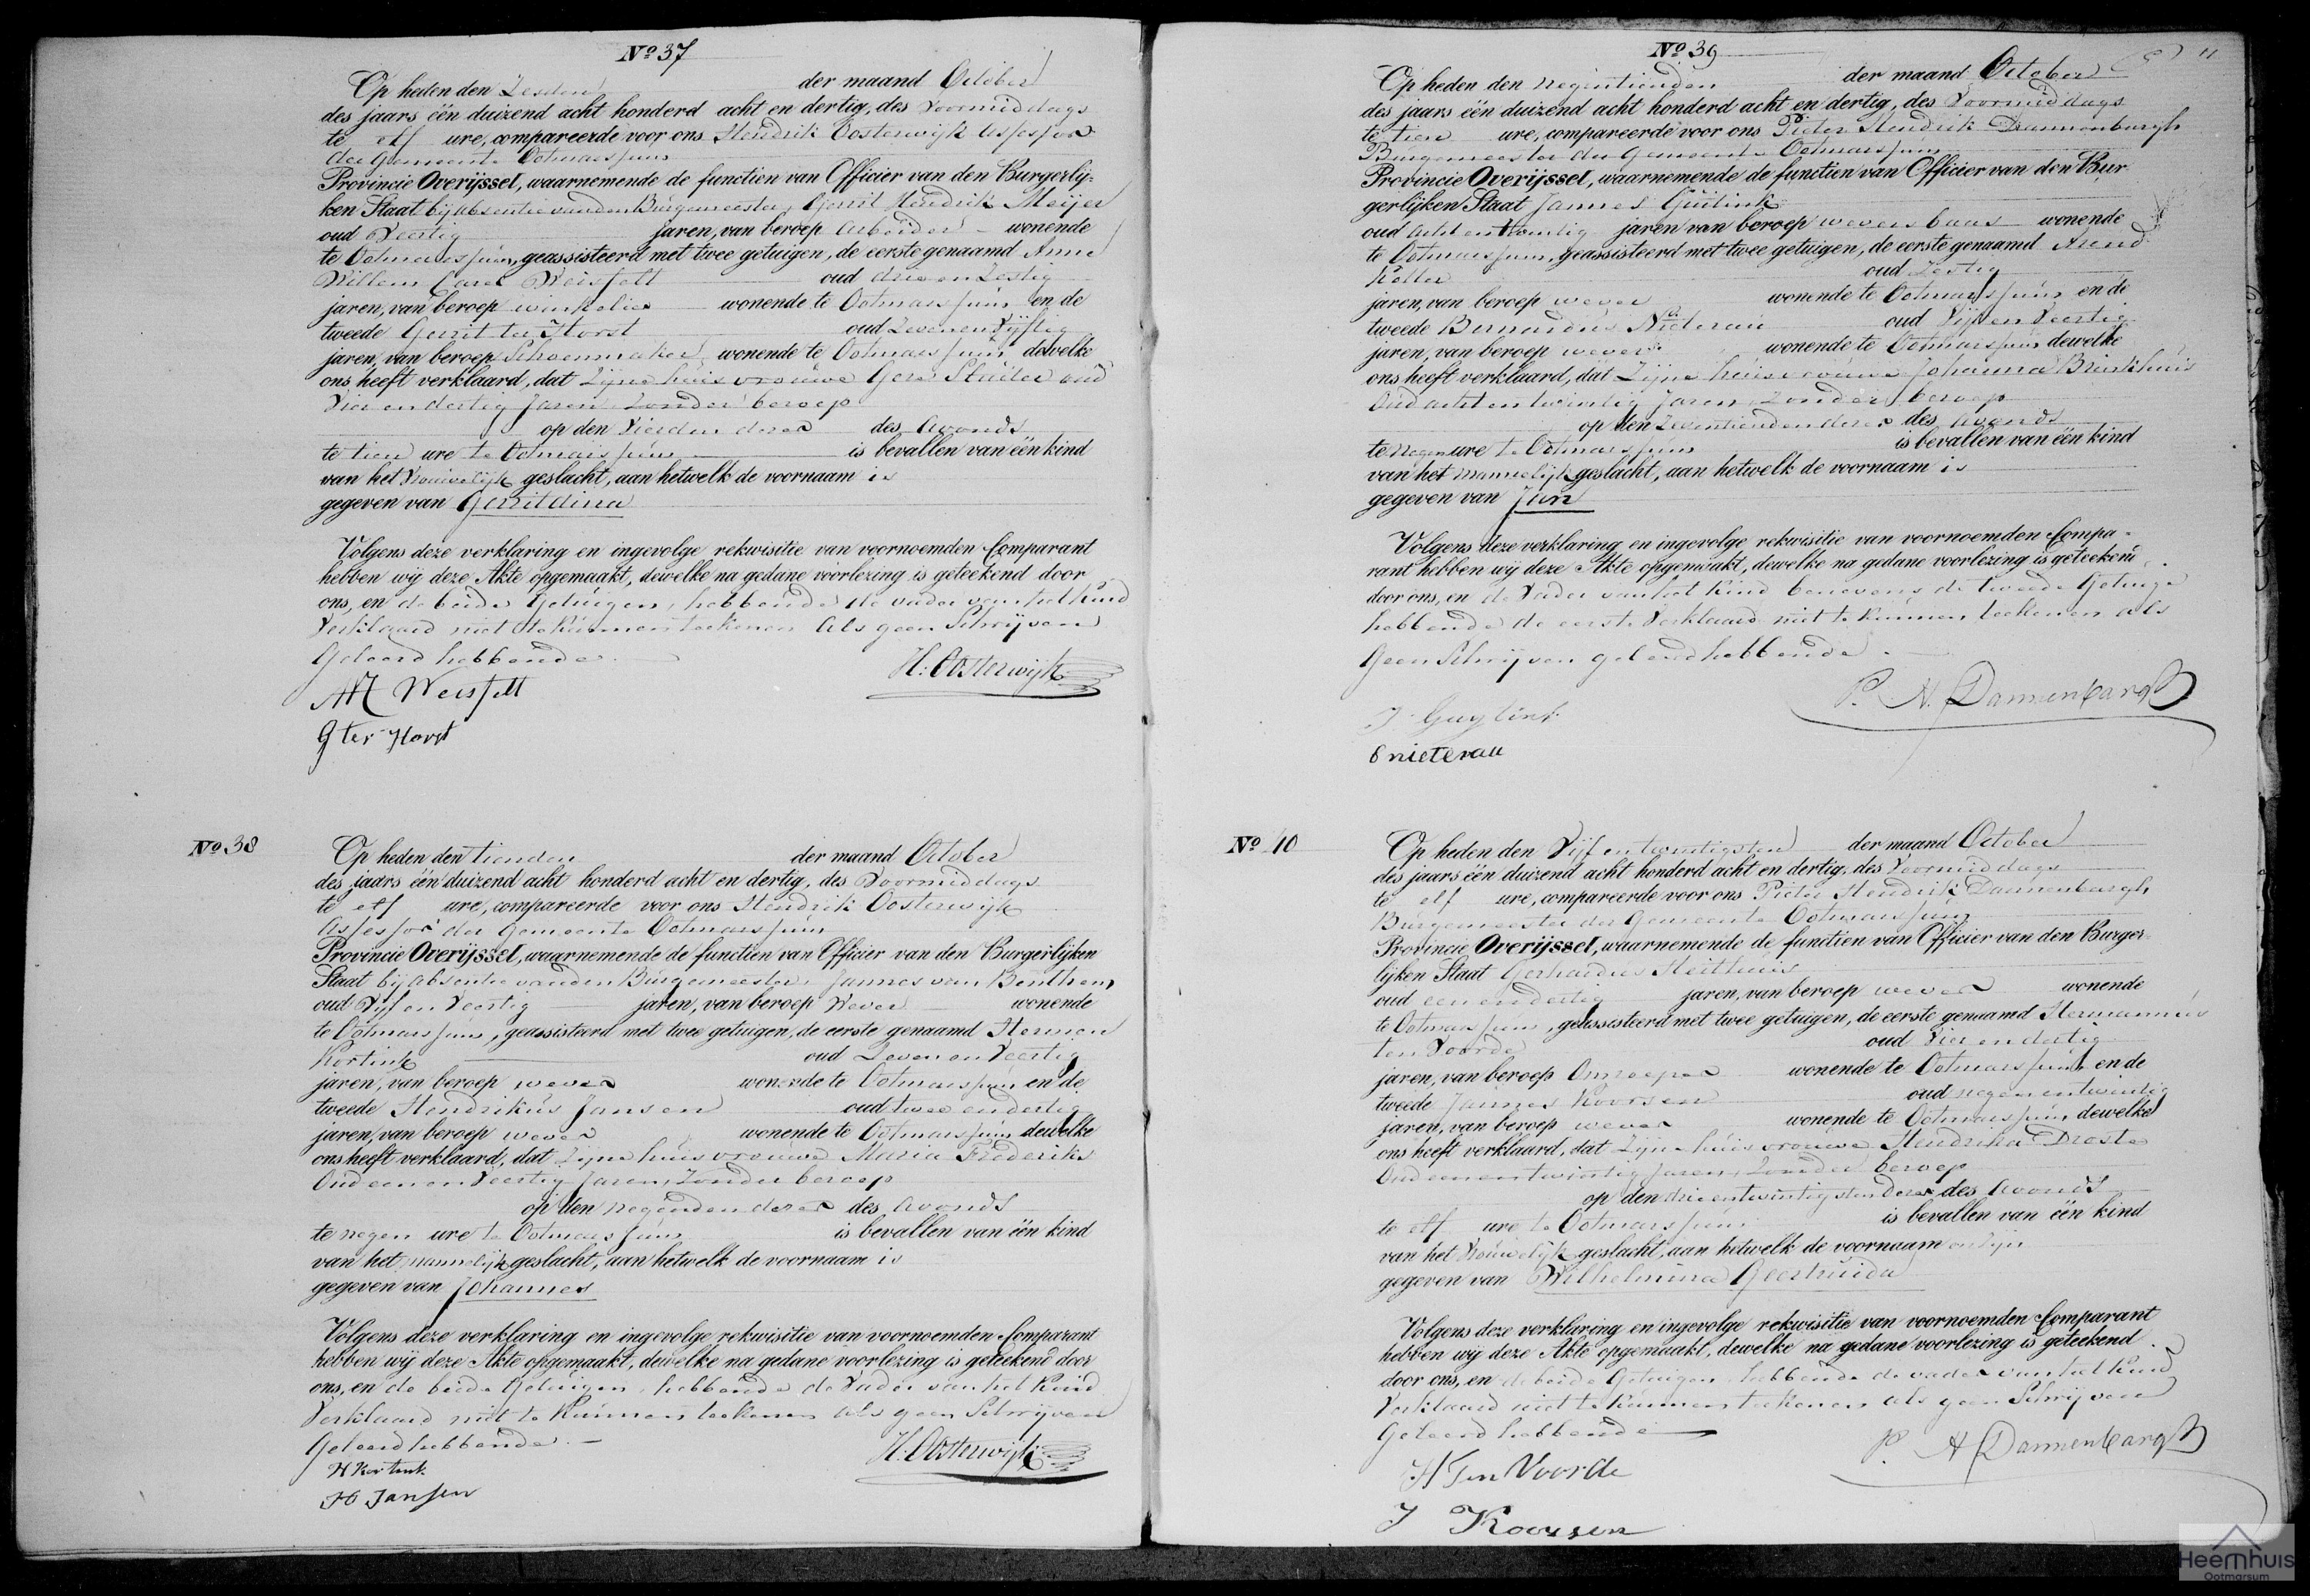 Nº 37
Op heden den Zesden der maand October
des jaars één duizend acht honderd acht en dertig, des Voormiddags
te elf ure, compareerde voor ons Hendrik Oosterwijk Assessor
der Gemeente Ootmarssum
Provincie Overijssel, waarnemende de functien van Officier van den Burgerlij-
ken Staat bij absentie van den Burgemeester, Gerrit Hendrik Meijer
oud Veertig jaren, van beroep Arbeider wonende
te Ootmarssum, geassisteerd met twee getuigen, de eerste genaamd Anne
Willem Carel Weisfelt oud drie en Zestig
jaren, van beroep winkelier wonende te Ootmarssum en de
tweede Gerrit ter Horst oud Zeven en Vijftig
jaren, van beroep Schoenmaker wonende te Ootmarssum dewelke
ons heeft verklaard, dat Zijne huisvrouwe Gera Sluiter oud
Vier en dertig Jaren Zonder beroep
op den Vierden dezer des Avonds
te tien ure te Ootmarssum is bevallen van één kind
van het Vrouwelijk geslacht, aan hetwelk de voornaam is
gegeven van Gerritdina
Volgens deze verklaring en ingevolge rekwisitie van voornoemden Comparant
hebben wij deze Akte opgemaakt, dewelke na gedane voorlezing is geteekend door
ons, en de beide Getuigen, hebbende de vader van het Kind
Verklaard niet te Kunnen teekenen als geen Schrijven
Geleerd hebbende.
H: Oosterwijk
Weisfelt
G ter Horst
Nº 38
Op heden den tienden der maand October
des jaars één duizend acht honderd acht en dertig, des Voormiddags
te elf ure, compareerde voor ons Hendrik Oosterwijk
Assessor der Gemeente Ootmarssum
Provincie Overijssel, waarnemende de functien van Officier van den Burgerlijken
Staat bij absentie van den Burgemeester Jannes van Benthem
oud Vijf en Veertig jaren, van beroep Wever wonende
te Ootmarssum, geassisteerd met twee getuigen, de eerste genaamd Hermen
Kortink oud Zeven en Veertig
jaren, van beroep wever wonende te Ootmarssum en de
tweede Hendrikus Jansen oud twee en dertig
jaren, van beroep wever wonende te Ootmarssum dewelke
ons heeft verklaard, dat Zijne huisvrouwe Maria Frederiks
Oud een en Veertig Jaren, Zonder beroep
op den negenden dezer des Avonds
te negen ure te Ootmarssum is bevallen van één kind
van het mannelijk geslacht, aan hetwelk de voornaam is
gegeven van Johannes
Volgens deze verklaring en ingevolge rekwisitie van voornoemden Comparant
hebben wij deze Akte opgemaakt, dewelke na gedane voorlezing is geteekend door
ons, en de beide Getuigen, hebbende de Vader van het Kind
Verklaard niet te Kunnen teekenen als geen Schrijven
Geleerd hebbende.
H: Oosterwijk
H Kortink
H Jansen
Nº 39
Op heden den negentienden der maand October
des jaars één duizend acht honderd acht en dertig, des Voormiddags
te tien ure, compareerde voor ons Pieter Hendrik Dannenbargh
Burgemeester der Gemeente Ootmarssum
Provincie Overijssel, waarnemende de functien van Officier van den Bur-
gerlijken Staat Jannes Guitink
oud acht en twintig jaren van beroep weversbaas wonende
te Ootmarssum, geassisteerd met twee getuigen, de eerste genaamd Arend
Keller oud Zestig
jaren, van beroep wever wonende te Ootmarssum en de
tweede Bernardus Nieterau oud Vijf en Veertig
jaren, van beroep wever wonende te Ootmarssum dewelke
ons heeft verklaard, dat Zijne huisvrouwe Johanna Brinkhuis
Oud acht en twintig Jaren, Zonder beroep
op den Zeventienden dezer des Avonds
te negen ure te Ootmarssum is bevallen van één kind
van het mannelijk geslacht, aan hetwelk de voornaam is
gegeven van Jan
Volgens deze verklaring en ingevolge rekwisitie van voornoemden Compa-
rant hebben wij deze Akte opgemaakt, dewelke na gedane voorlezing is geteekend
door ons, en de Vader van het Kind benevens de tweede Getuige
hebbende de eerste Verklaard niet te Kunnen teekenen als
Geen Schrijven geleerd hebbende.
P. H. Dannenbargh
J Guytink
B nieterau
Nº 40
Op heden den Vijf en twintigsten der maand October
des jaars één duizend acht honderd acht en dertig, des Voormiddags
te elf ure, compareerde voor ons Pieter Hendrik Dannenbargh
Burgemeester der Gemeente Ootmarssum
Provincie Overijssel, waarnemende de functien van Officier van den Burger-
lijken Staat Gerhardus Heithuis
oud een en dertig jaren, van beroep wever wonende
te Ootmarssum, geassisteerd met twee getuigen, de eerste genaamd Hermannus
ten Voorde oud Vier en dertig
jaren, van beroep Omroeper wonende te Ootmarssum en de
tweede Jannes Koorsen oud negen en twintig
jaren, van beroep wever wonende te Ootmarssum dewelke
ons heeft verklaard, dat Zijne huisvrouwe Hendrika Droste
Oud een en twintig Jaren, Zonder beroep
op den drie en twintigsten dezer des Avonds
te elf ure te Ootmarssum is bevallen van één kind
van het Vrouwelijk geslacht, aan hetwelk de voornaam en Zijn
gegeven van Wilhelmina Geertruida
Volgens deze verklaring en ingevolge rekwisitie van voornoemden Comparant
hebben wij deze Akte opgemaakt, dewelke na gedane voorlezing is geteekend
door ons, en de beide Getuigen hebbende de vader van het Kind
Verklaard niet te Kunnen teekenen als geen Schrijven
Geleerd hebbende
P. H Dannenbargh
H Ten Voorde
J Koorsen
Heemhuis
Ootmarsum